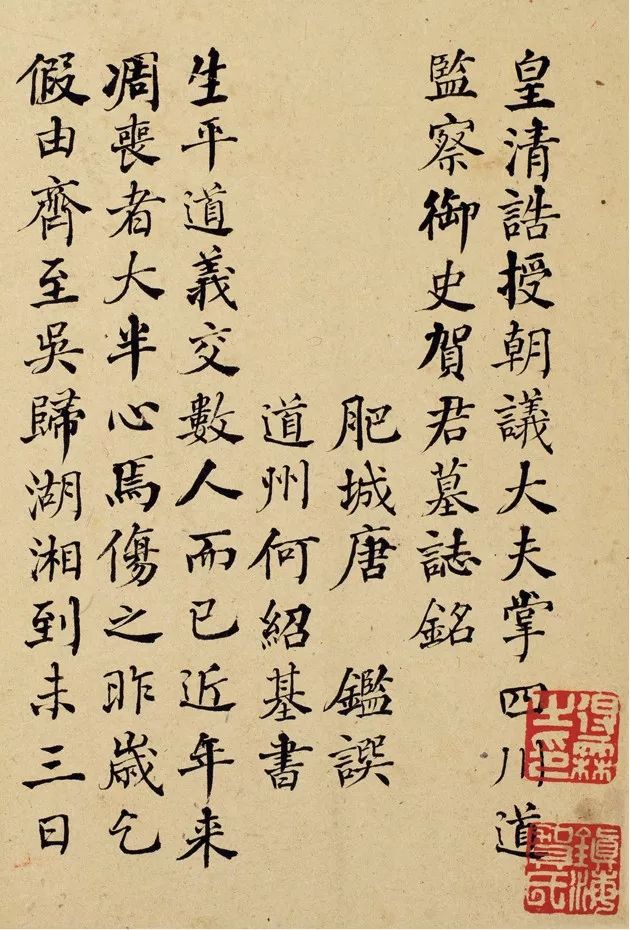 皇清誥授朝議大夫掌四川道
監察御史賀君墓誌銘
肥城唐鑑譔
道州何紹基書
生平道義交數人而已近年来
凋喪者大半心焉傷之昨歲乞
假由齊至吳歸湖湘到未三日